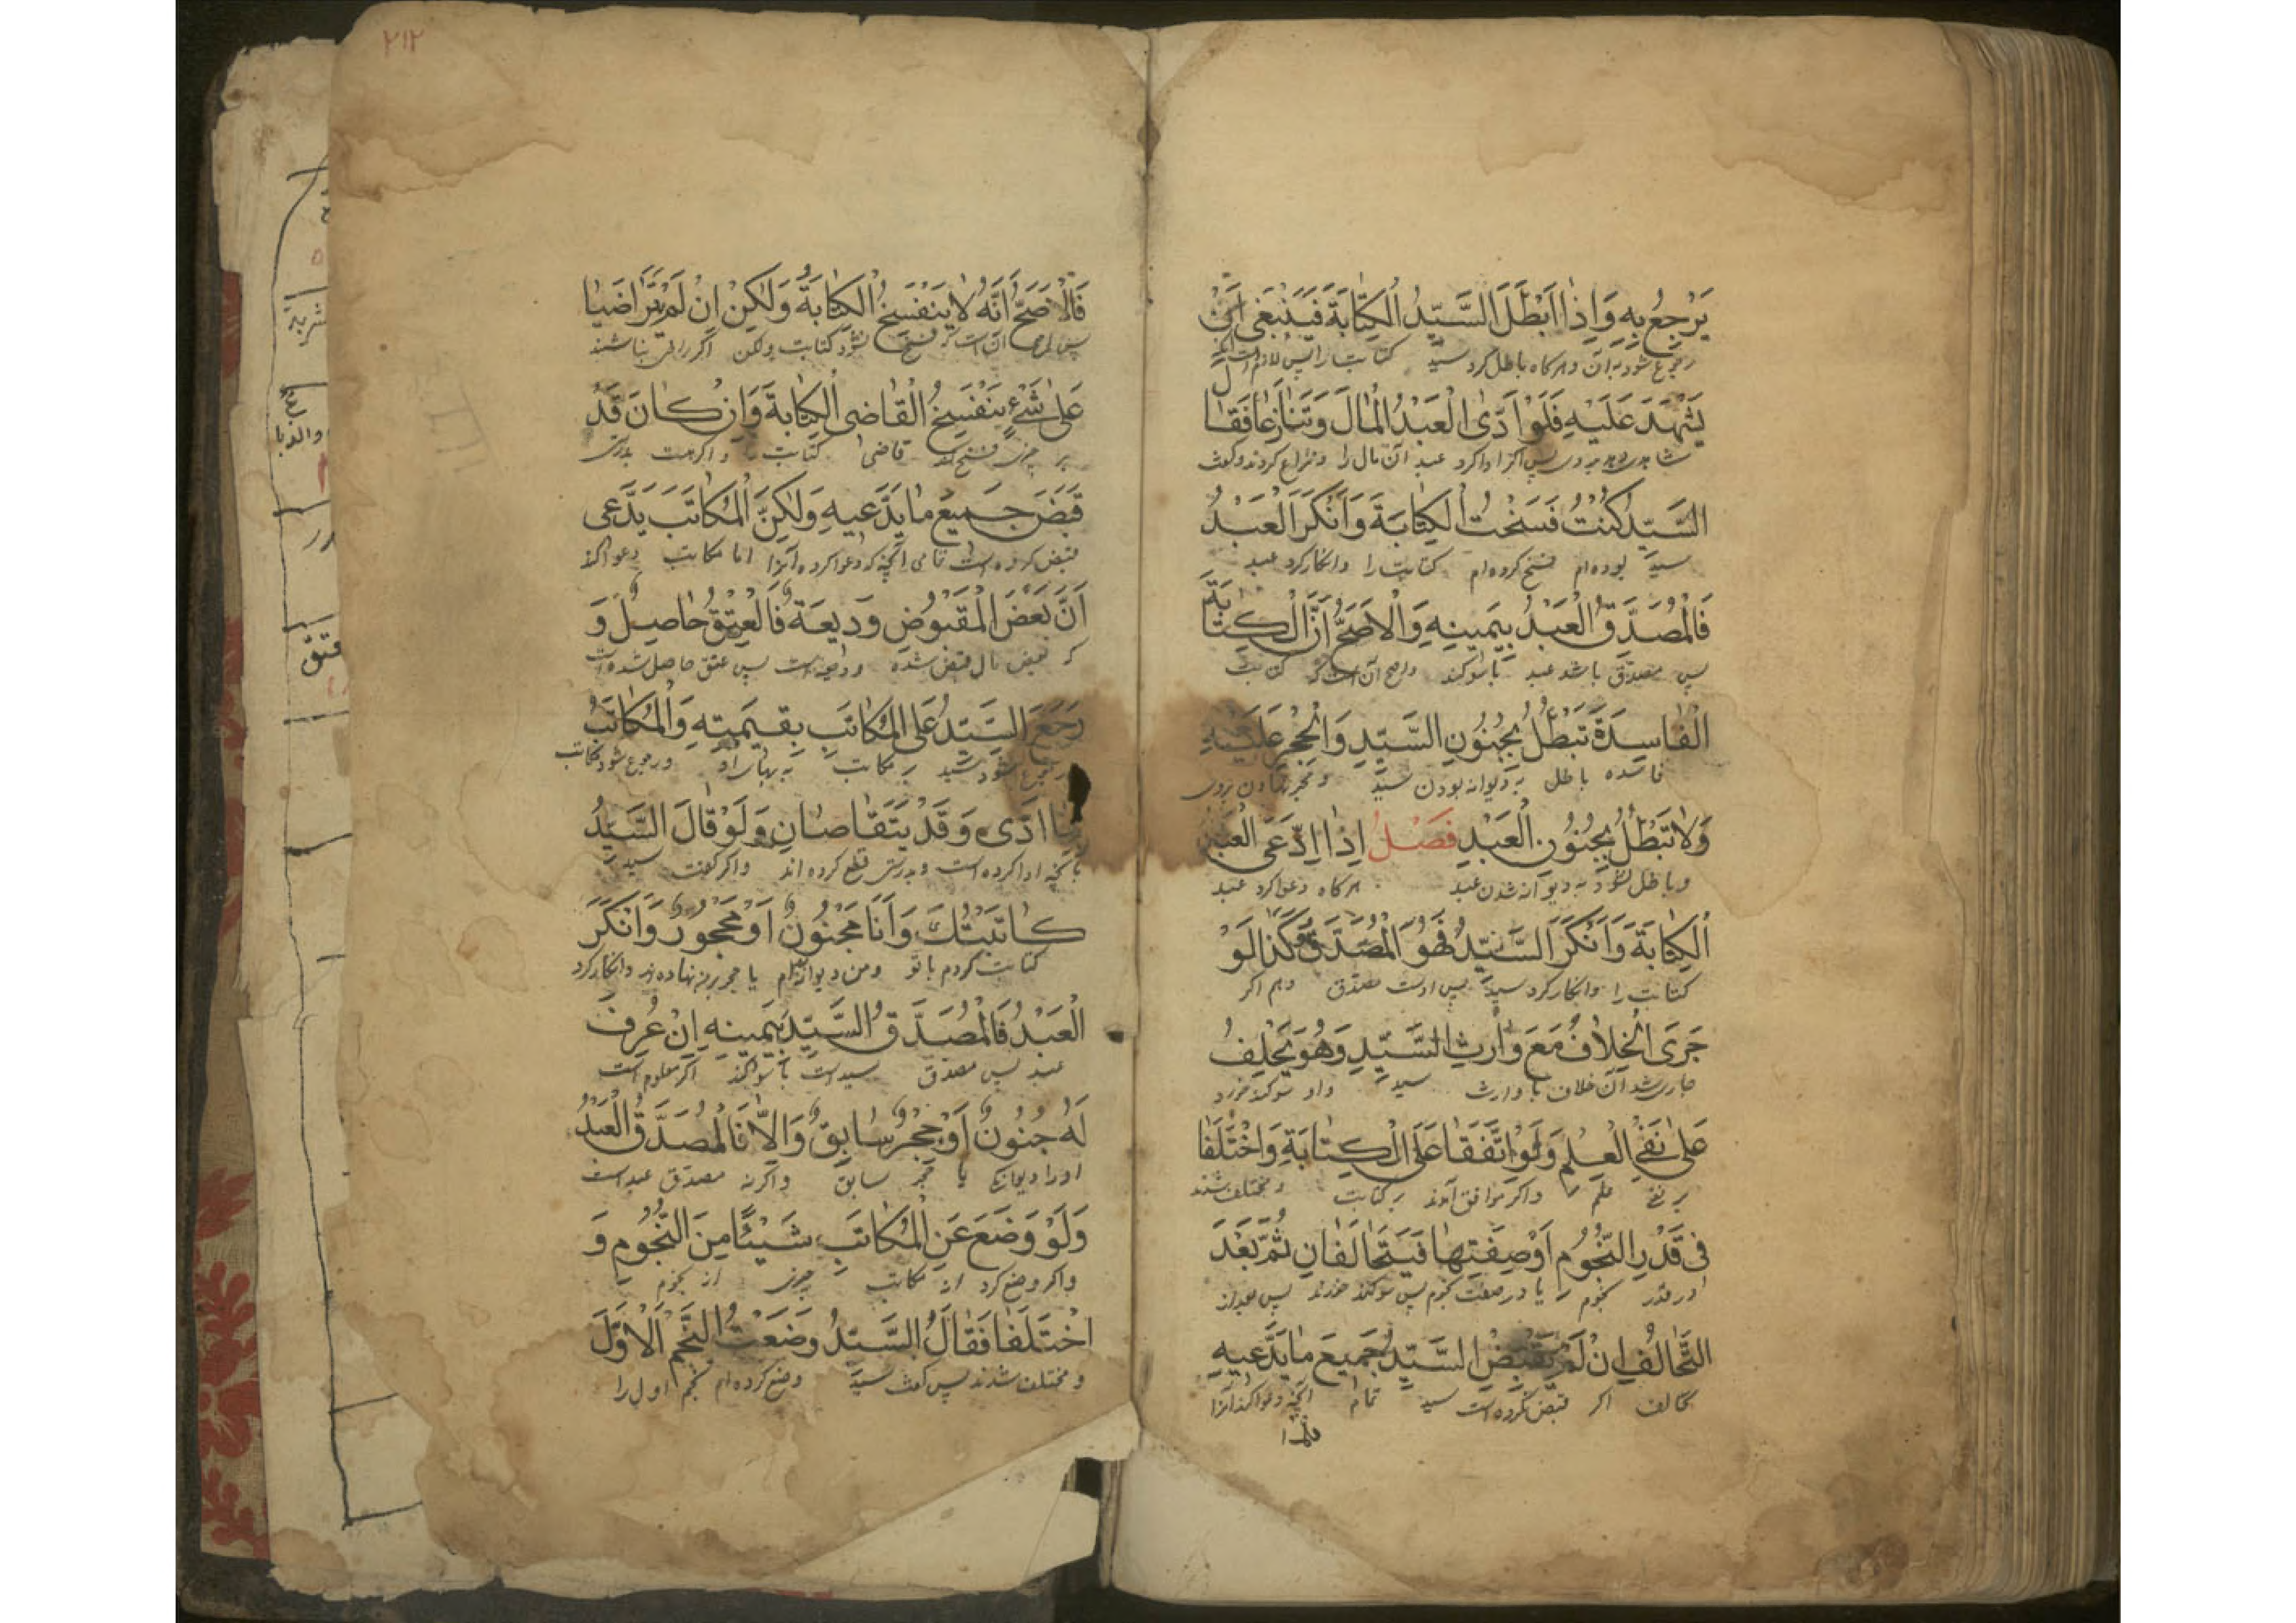 يَرْجِعُ بِهِ وَاِذَا اَبْطَلَ السَّيِّدُ الْكِتَابَةَ فَيَنْبَغِى اَنْ
رجوع شود به آن و هر كاه باطل كرد سيد كتابت را پس لازم است
يَشْهَدَ عَلَيْهِ فَلَوْ اَدَّى الْعَبْدُ الْمَالَ وَتَنَازَعَا فَقَالَ
بروى پس اكر ادا كرد عبد آن مال را و نزاع كردند و كفت
السَّيِّدُ كُنْتُ فَسَخْتُ الْكِتَابَةَ وَاَنْكَرَ الْعَبْدُ
سيد بوده ام فسخ كرده ام كتابت را و انكار كرد عبد
فَالْمُصَدَّقُ الْعَبْدُ بِيَمِينِهِ وَالْاَصَحُّ اَنَّ الْكِتَابَةَ
پس مصدق باشد عبد با سوكند و اصح آن است كه كتابت
الْفَاسِدَةَ تَبْطُلُ بِجُنُونِ السَّيِّدِ وَالْحَجْرِ عَلَيْهِ
فاسده باطل به ديوانه بودن سيد و حجر نهادن بروى
وَلَا تَبْطُلُ بِجُنُونِ الْعَبْدِ فَصْلُ اِذَا اِدَّعَى الْعَبْدُ
و باطل نشود به ديوانه شدن عبد هر كاه دعوا كرد عبد
الْكِتَابَةَ وَاَنْكَرَ السَّيِّدُ فَهُوَ الْمُصَدَّقُ وَكَذَا لَوْ
كتابت را و انكار كرد سيد پس اوست مصدق و هم اكر
جَرَى الْخِلَافُ مَعَ وَارِثِ السَّيِّدِ وَهُوَ يَحْلِفُ
جارى شد آن خلاف با وارث سيد و او سوكند خورد
عَلَى نَفْىِ الْعِلْمِ وَلَوْ اتَّفَقَا عَلَى الْكِتَابَةِ وَاخْتَلَفَا
بر نفى علم و اكر موافق آمدند بر كتابت و مختلف شدند
فِى قَدْرِ النُّجُومِ اَوْ صِفَتِهَا فَيَتَحَالَفَانِ ثُمَّ بَعْدَ
در قدر نجوم يا در صفت نجوم پس سوكند خورند پس بعد از
التَّحَالُفِ اِنْ لَمْ يَقْبِضِ السَّيِّدُ جَمِيعَ مَا يَدَّعِيهِ
تحالف اكر قبض نكرده است سيد تمام آنچه دعوا كند آنرا
٢١٢
فَالْاَصَحُّ اَنَّهُ لَا يَنْفَسِخُ الْكِتَابَةُ وَلَكِنْ اِنْ لَمْ يَتَرَاضَيَا
پس اصح آن است كه فسخ نشود كتابت ولكن اكر راضى نباشند
عَلَى شَىْءٍ يَنْفَسِخُ الْقَاضِى الْكِتَابَةَ وَاِنْ كَانَ قَدْ
بر چيزى فسخ كند قاضى كتابت را و اكر هست بدرستى
قَبَضَ جَمِيعَ مَا يَدَّعِيهِ وَلَكِنَّ الْمُكَاتَبَ يَدَّعِى
قبض كرده است تمامى آنچه كه دعوا كرده آنرا اما مكاتب دعوا كند
اَنَّ بَعْضَ الْمَقْبُوضِ وَدِيعَةٌ فَالْعِتْقُ حَاصِلٌ وَ
كه بعض مال قبض شده وديعه است پس عتق حاصل شده است
رَجَعَ السَّيِّدُ عَلَى الْمُكَاتَبِ بِقِيمَتِهِ وَالْمُكَاتَبُ
رجوع شود سيد بر مكاتب به بهاى او و رجوع شود مكاتب
بِمَا اَدَّى وَقَدْ يَتَقَاصَّانِ وَلَوْ قَالَ السَّيِّدُ
بآنچه ادا كرده است و بدرستى قطع كرده اند و اكر كفت سيد
كَاتَبْتُكَ وَاَنَا مَجْنُونٌ اَوْ مَحْجُورٌ وَاَنْكَرَ
كتابت كردم با تو و من ديوانه ام يا حجر بر من نهاده اند و انكار كرد
الْعَبْدُ فَالْمُصَدَّقُ السَّيِّدُ بِيَمِينِهِ اِنْ عُرِفَ
عبد پس مصدق سيد است با سوكند اكر معلوم است
لَهُ جُنُونٌ اَوْ حَجْرٌ سَابِقٌ وَاِلَّا فَالْمُصَدَّقُ الْعَبْدُ
او را ديوانكى يا حجر سابق و اكر نه مصدق عبد است
وَلَوْ وَضَعَ عَنِ الْمُكَاتَبِ شَيْئًا مِنَ النُّجُومِ وَ
و اكر وضع كرد از مكاتب چيزى از نجوم
اخْتَلَفَا فَقَالَ السَّيِّدُ وَضَعْتُ النَّجْمَ الْاَوَّلَ
و مختلف شدند پس كفت سيد وضع كرده ام نجم اول را